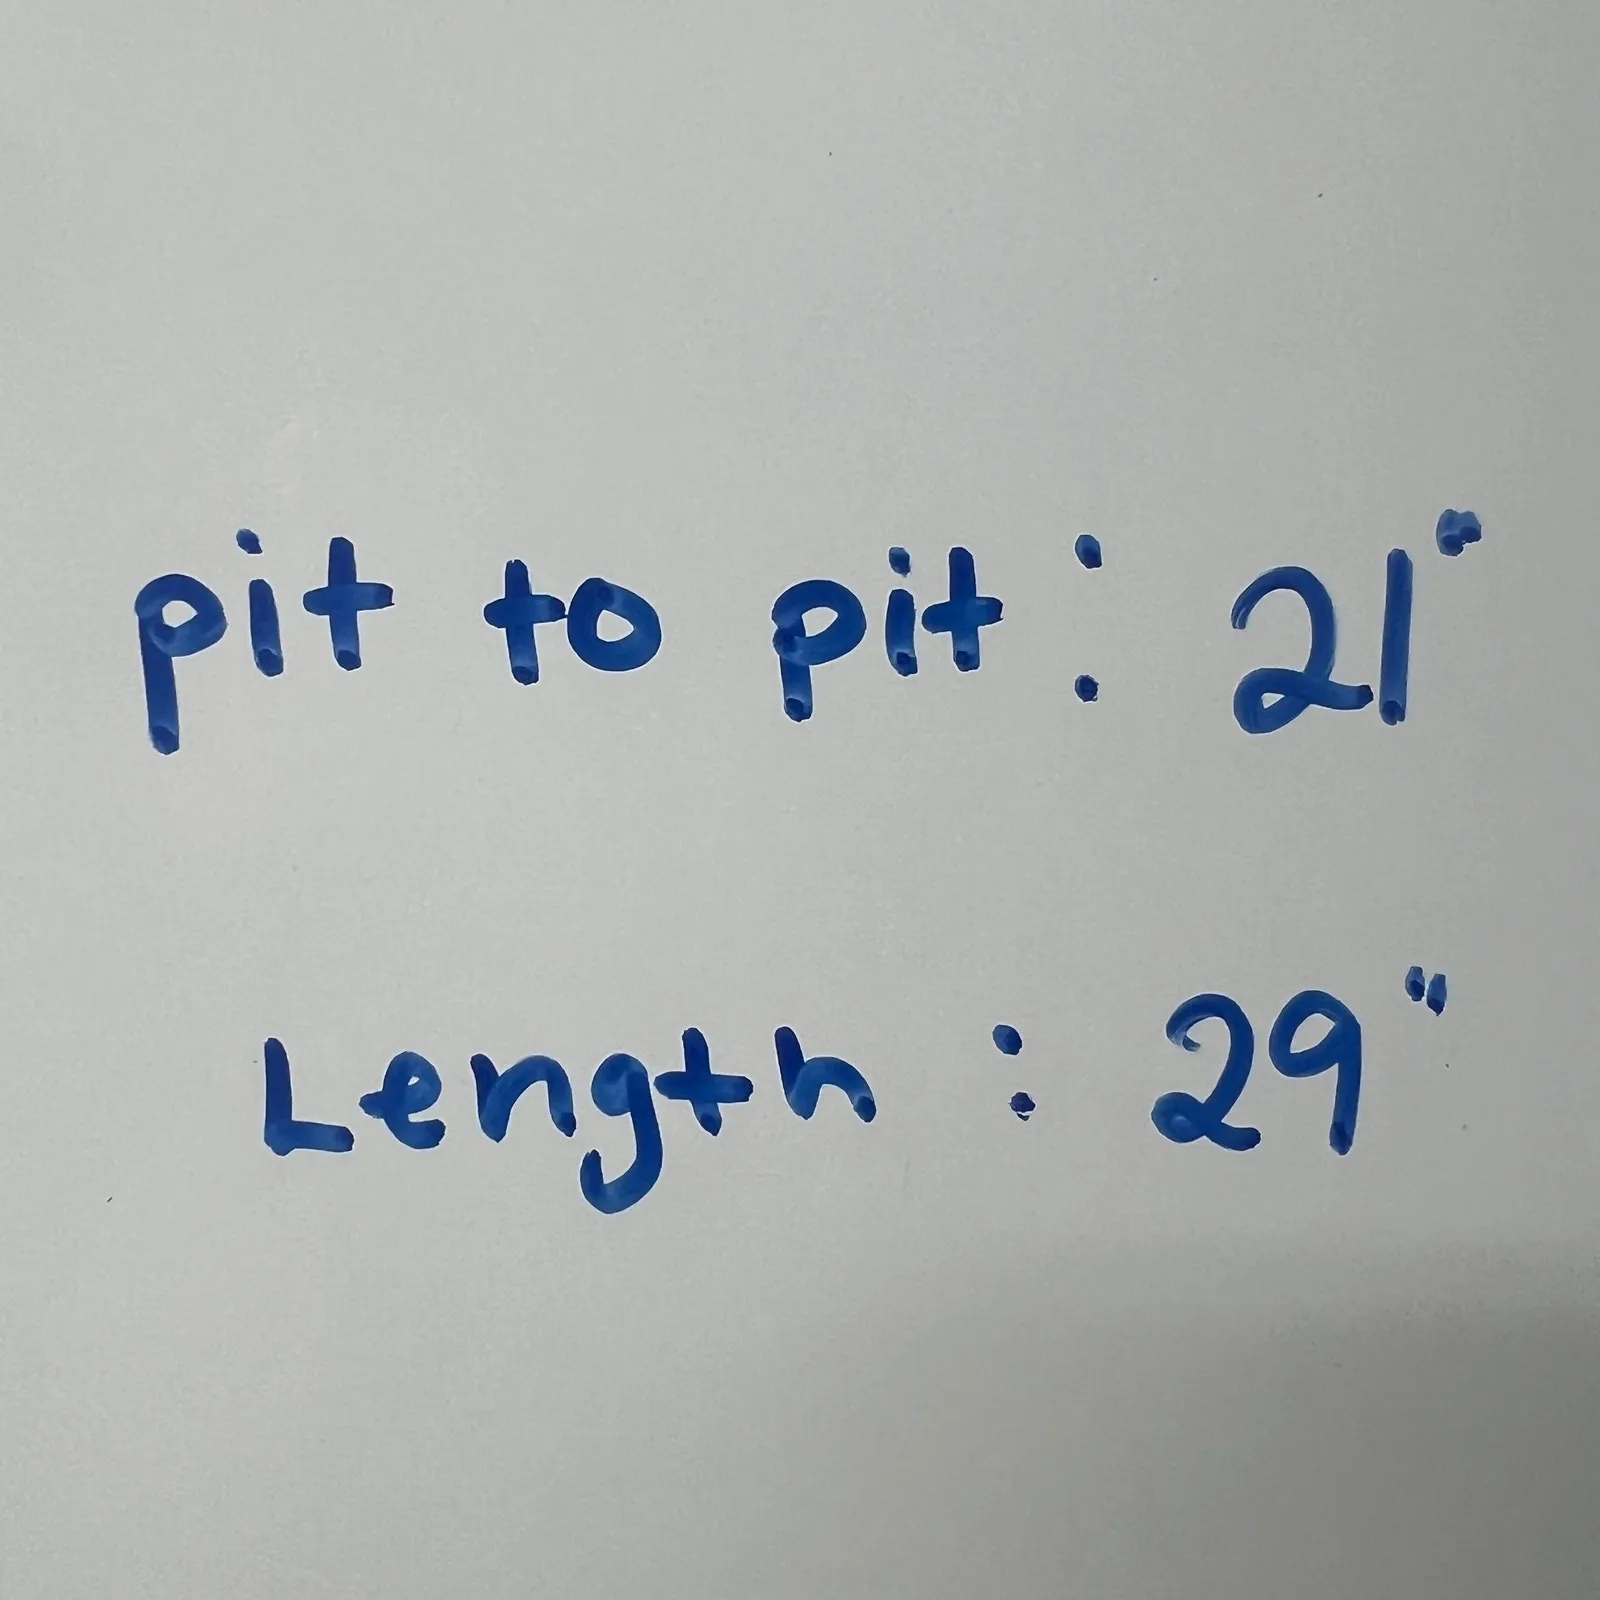 pit to pit : 21"
Length : 29"